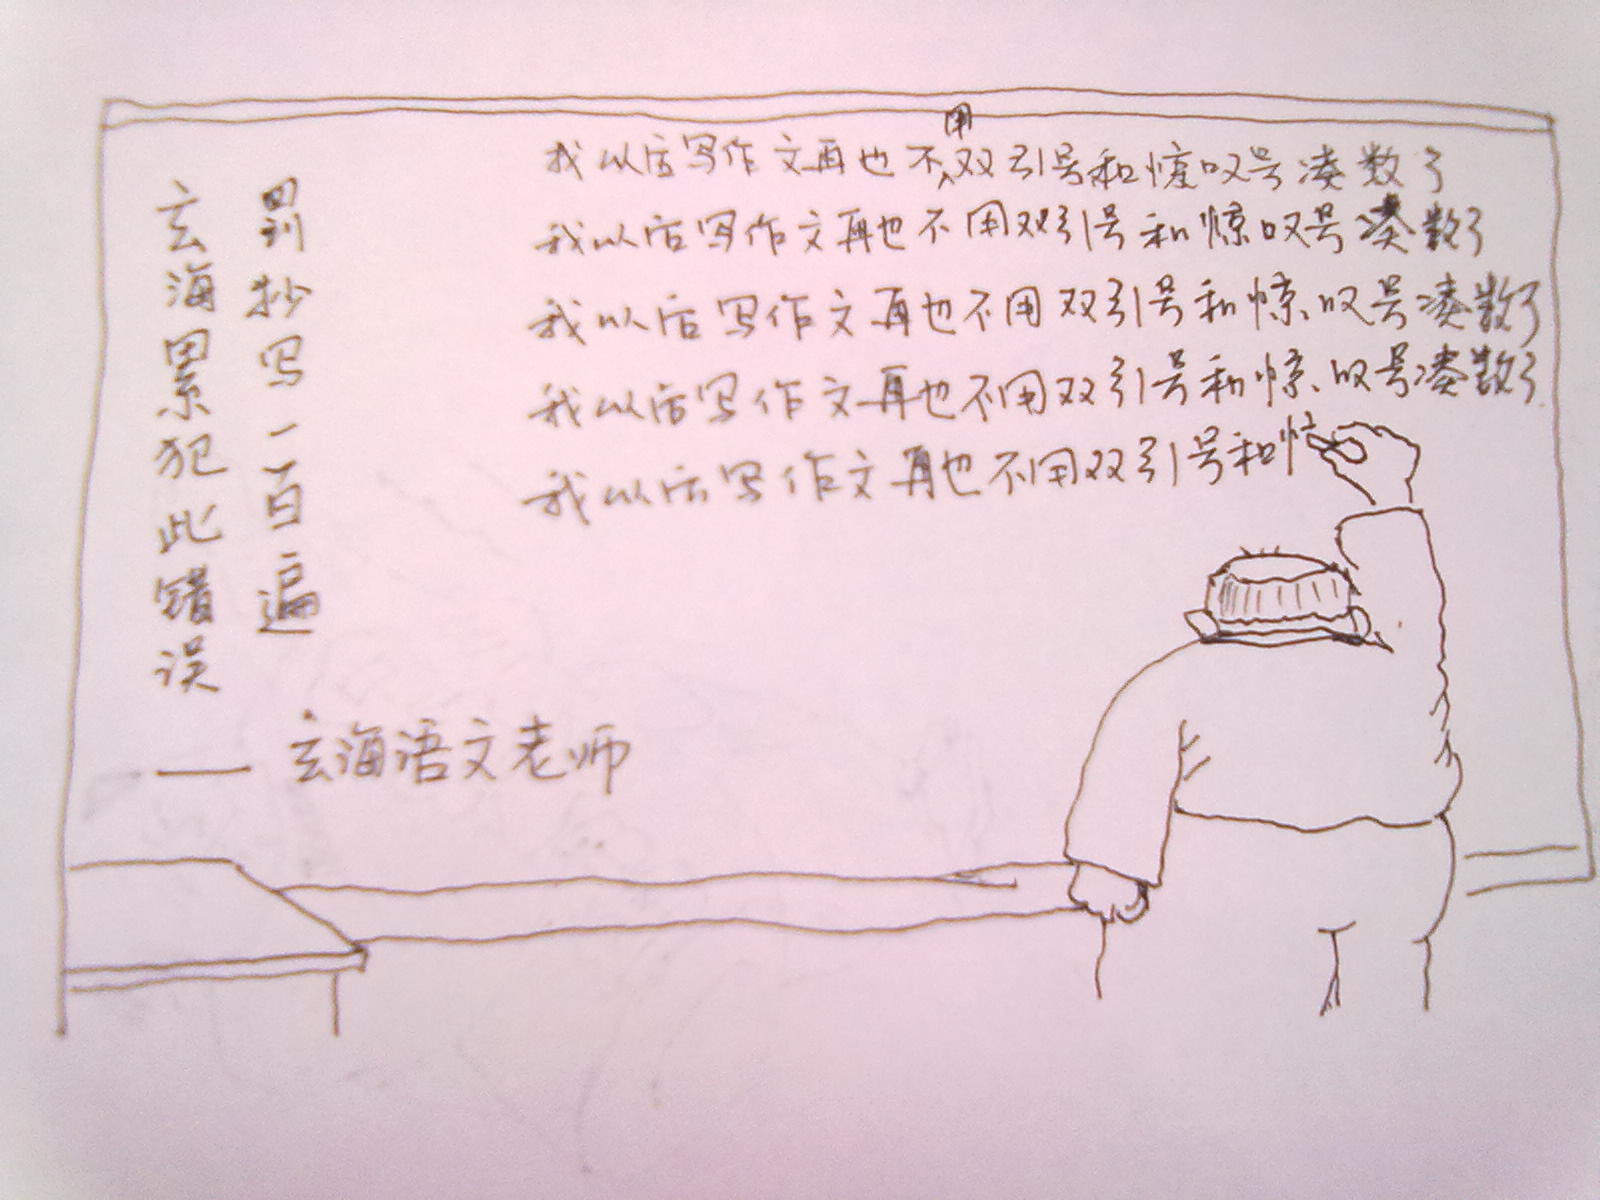 玄海累犯此错误
罚抄写一百遍
—— 玄海语文老师
我以后写作文再也不用双引号和惊叹号凑数了
我以后写作文再也不用双引号和惊叹号凑数了
我以后写作文再也不用双引号和惊叹号凑数了
我以后写作文再也不用双引号和惊叹号凑数了
我以后写作文再也不用双引号和